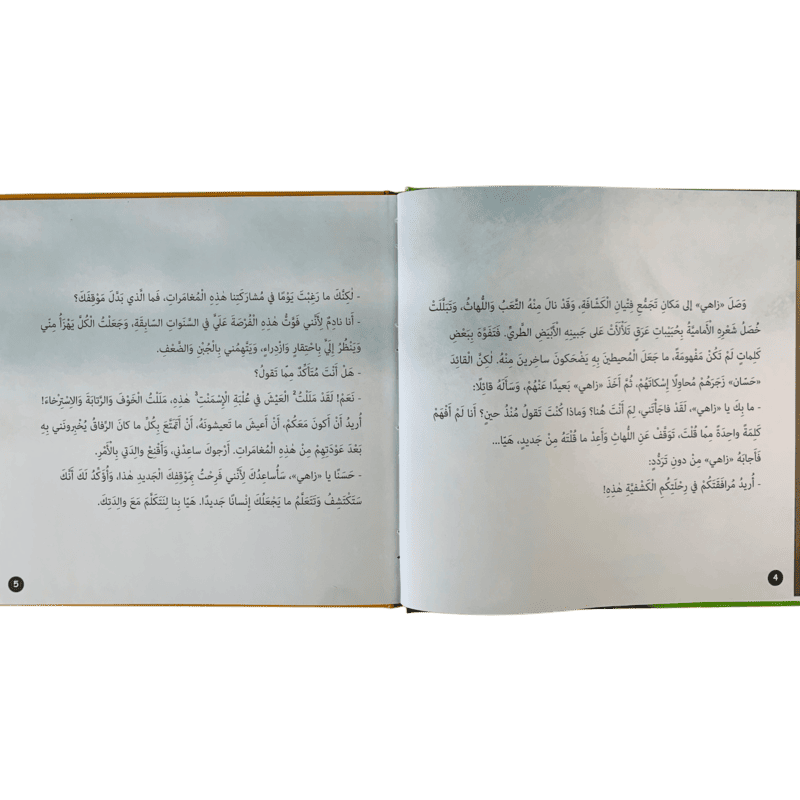 وَصَلَ «زاهي» إلى مَكانِ تَجَمُّعِ فِتْيانِ الْكَشّافَةِ، وَقَدْ نالَ مِنْهُ التَّعَبُ وَاللُّهاثُ، وَتَبَلَّلَتْ
خُصَلُ شَعْرِهِ الْأَمامِيَّةُ بِحُبَيْباتِ عَرَقٍ تَلَأْلَأَتْ عَلى جَبينِهِ الْأَبْيَضِ الطَّرِيِّ. فَتَفَوَّهَ بِبَعْضِ
كَلِماتٍ لَمْ تَكُنْ مَفْهومَةً، ما جَعَلَ الْمُحيطينَ بِهِ يَضْحَكونَ ساخِرينَ مِنْهُ. لٰكِنَّ الْقائِدَ
«حَسّان» زَجَرَهُمْ مُحاوِلًا إِسْكاتَهُمْ، ثُمَّ أَخَذَ «زاهي» بَعيدًا عَنْهُمْ، وَسَأَلَهُ قائِلًا:
- ما بِكَ يا «زاهي»، لَقَدْ فاجَأْتَني، لِمَ أَنْتَ هُنا؟ وَماذا كُنْتَ تَقولُ مُنْذُ حينٍ؟ أَنا لَمْ أَفْهَمْ
كَلِمَةً واحِدَةً مِمّا قُلْتَ، تَوَقَّفْ عَنِ اللُّهاثِ وَأَعِدْ ما قُلْتَهُ مِنْ جَديدٍ، هَيّا...
فَأَجابَهُ «زاهي» مِنْ دونِ تَرَدُّدٍ:
- أُريدُ مُرافَقَتَكُمْ في رِحْلَتِكُمِ الْكَشْفِيَّةِ هٰذِهِ!
4
- لٰكِنَّكَ ما رَغِبْتَ يَوْمًا في مُشارَكَتِنا هٰذِهِ الْمُغامَراتِ، فَما الَّذي بَدَّلَ مَوْقِفَكَ؟
- أَنا نادِمٌ لِأَنَّني فَوَّتُّ هٰذِهِ الْفُرْصَةَ عَلَيَّ في السَّنَواتِ السّابِقَةِ، وَجَعَلْتُ الْكُلَّ يَهْزَأُ مِنّي
وَيَنْظُرُ إِلَيَّ بِاحْتِقارٍ وَازْدِراءٍ، وَيَتَّهِمُني بِالْجُبْنِ وَالضَّعْفِ.
- هَلْ أَنْتَ مُتَأَكِّدٌ مِمّا تَقولُ؟
- نَعَمْ! لَقَدْ مَلَلْتُ الْعَيْشَ في عُلْبَةِ الْإِسْمَنْتِ هٰذِهِ، مَلَلْتُ الْخَوْفَ وَالرَّتابَةَ وَالِاسْتِرْخاءَ!
أُريدُ أَنْ أَكونَ مَعَكُمْ، أَنْ أَعيشَ ما تَعيشونَهُ، أَنْ أَتَمَتَّعَ بِكُلِّ ما كانَ الرِّفاقُ يُخْبِرونَني بِهِ
بَعْدَ عَوْدَتِهِمْ مِنْ هٰذِهِ الْمُغامَراتِ. أَرْجوكَ ساعِدْني، وَأَقْنِعْ والِدَتي بِالْأَمْرِ.
- حَسَنًا يا «زاهي»، سَأُساعِدُكَ لِأَنَّني فَرِحْتُ بِمَوْقِفِكَ الْجَديدِ هٰذا، وَأُؤَكِّدُ لَكَ أَنَّكَ
سَتَكْتَشِفُ وَتَتَعَلَّمُ ما يَجْعَلُكَ إِنْسانًا جَديدًا. هَيّا بِنا لِنَتَكَلَّمَ مَعَ والِدَتِكَ.
5